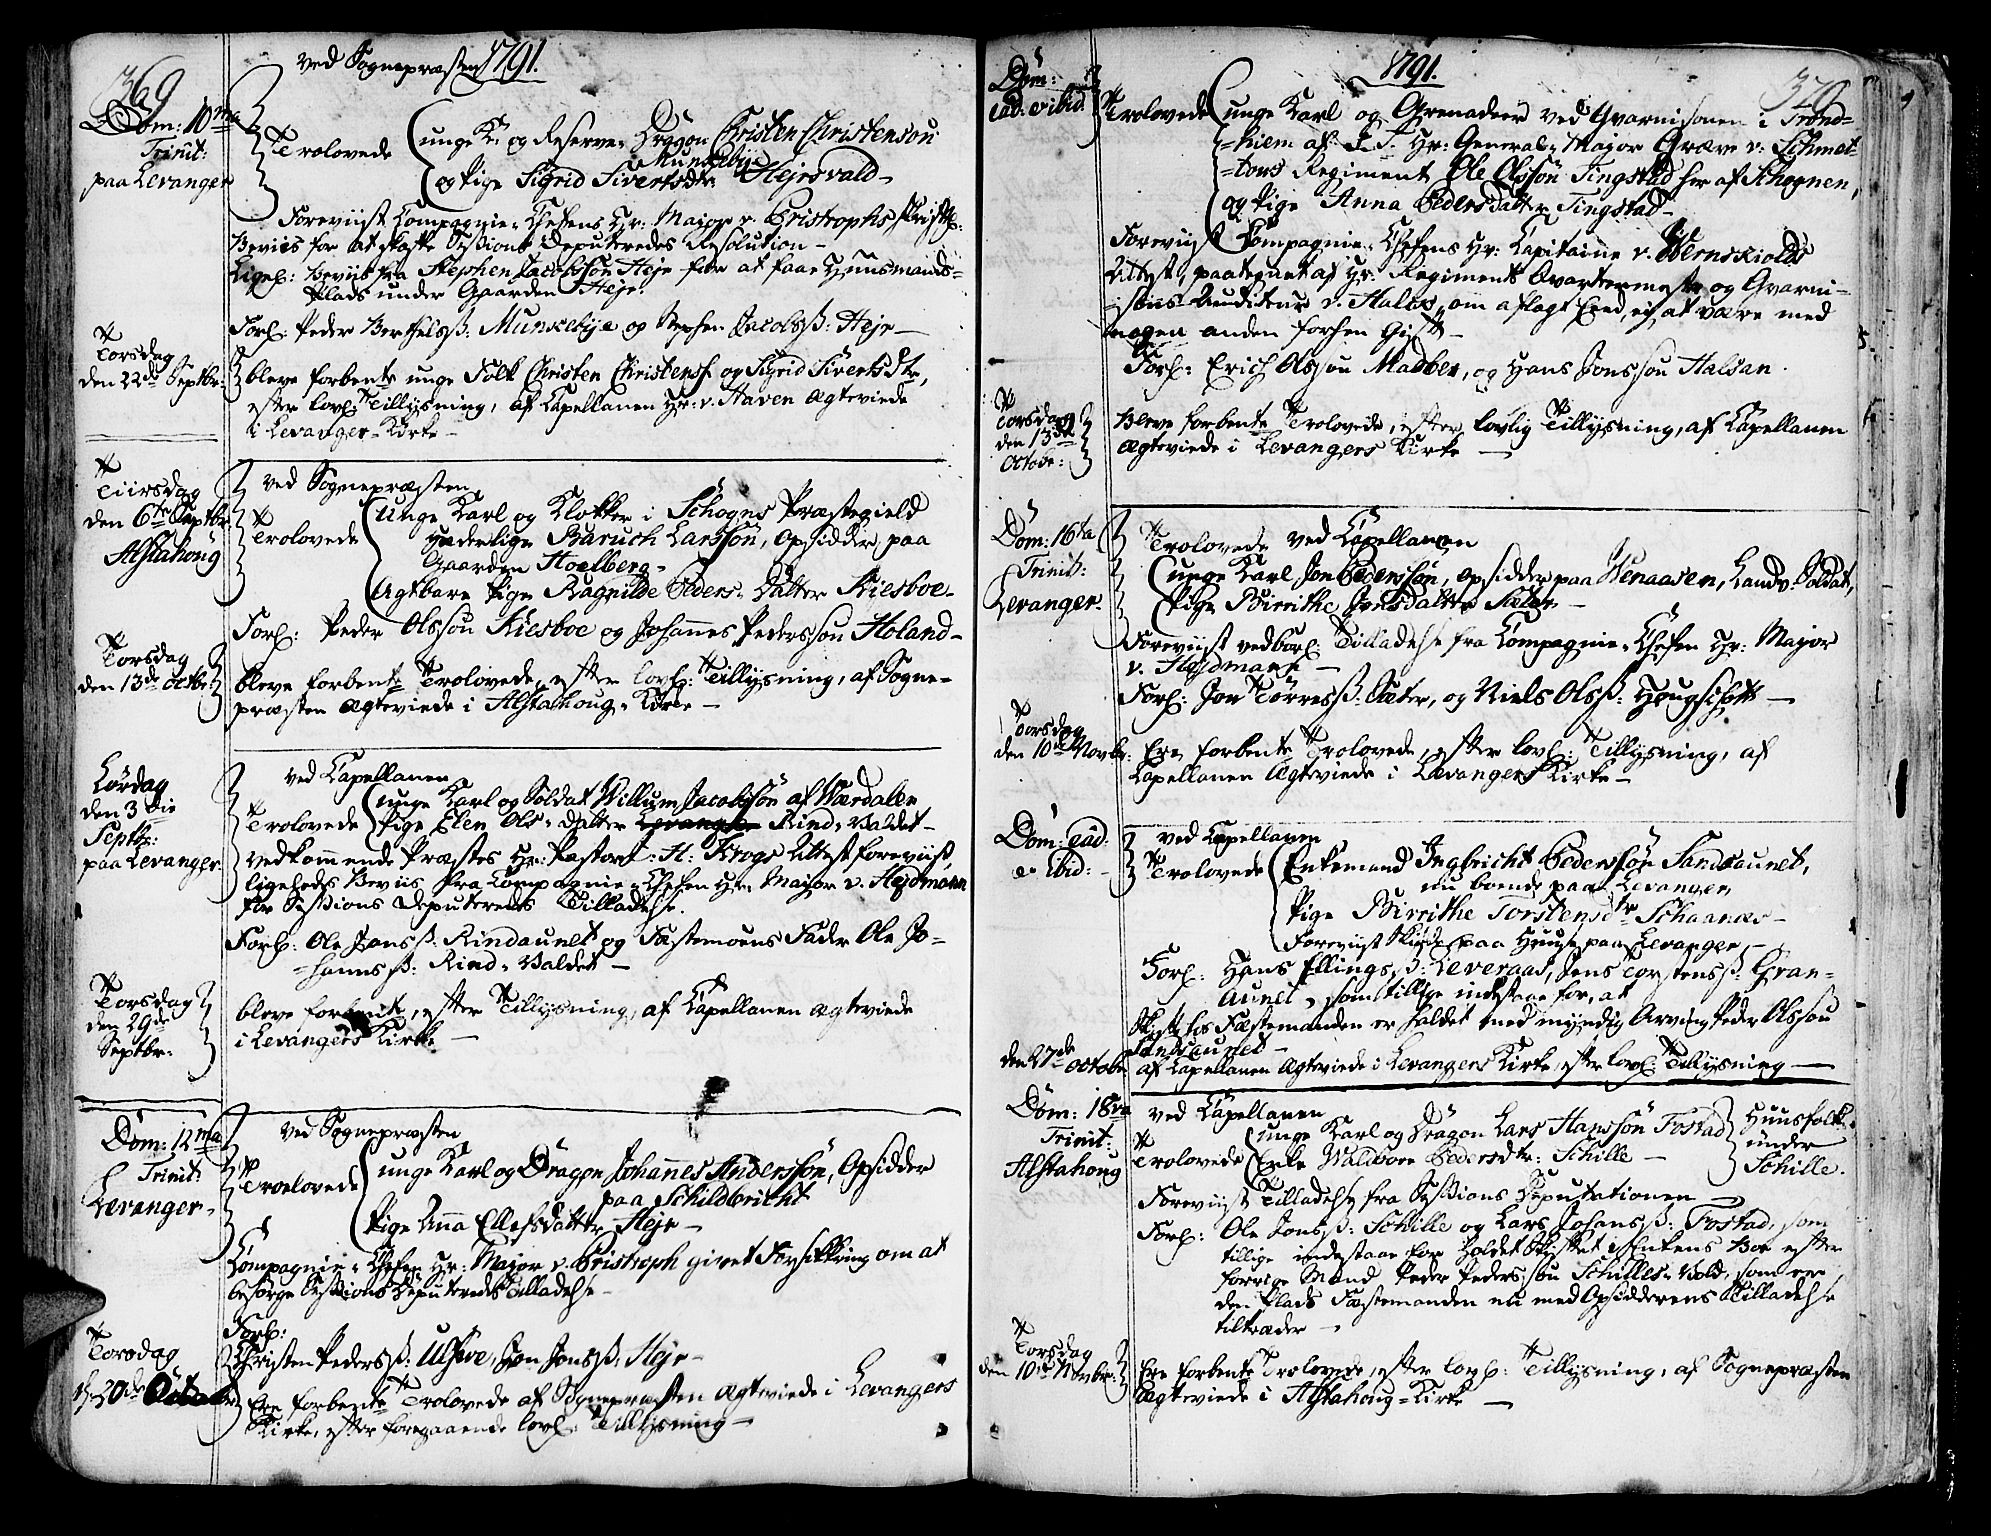 369
ved Sognepræsten 1791.
Dom: 10ma
Trinit:
paa Levanger
Trolovede
unge K. og Reserve-Dragon Christen Christenson
Munkebye
og Pige Sigrid Sivertsdtr: Hejesvald
Foreviist Compagnie-Chefens Hr: Major v. Bristrophs skriftl:
Beviis for at skaffe Sessions Deputeredes Resolution
Ligel: Beviis fra Stephen Jacobssøn Heje for at faae Huusmands-
Plads under Gaarden Heje.
Forl: Peder Berthelss: Munkebye og Stephen Jacobss: Heje
Torsdag
den 22de Septbr:
bleve forbente unge Folk Christen Christens: og Sigrid Sivertsdtr,
efter lovl: Tillysning, af Capellanen Hr: v. Haven ægteviede
i Levanger-Kirke
Tiirsdag
den 6te Septbr
Alstahoug
ved Sognepræsten
Trolovede
unge Karl og Klokker i Schogns Præstegield
Hæderlige Baruch Larssøn, Opsidder paa
Gaarden Hoelberg
Agtbare Pige Ragnilde Peders-Datter Kiesboe
Forl: Peder Olssøn Kiesboe og Johannes Pederssøn Holand
Torsdag
den 13de Octbr
bleve forbente Trolovede, efter lovl: Tillysning, af Sogne-
præsten ægteviede i Alstahoug-Kirke
Lørdag
den 3die
Septbr:
paa Levanger
ved Capellanen
Trolovede
unge Karl og Soldat Willum Jacobssøn af Wærdalen
Pige Elen Ols-datter Rind-Valdet
vedkommende Præstes Hr: Pastor H: Krogs Attest foreviist,
ligeheds Beviis fra Compagnie-Chefen Hr: Major v. Hejdmann
for Sessions Deputeredes Tilladelse.
Forl: Ole Janss: Rindaunet og Fæstemøens Fader Ole Jo-
hannss: Rind-Valdet
Torsdag
den 29de
Septbr:
bleve forbente, efter Tillysning, af Capellanen ægteviede
i Levangers Kirke
Dom: 12ma
Trinit:
Levanger
ved Sognepræsten
Trolovede
unge Karl og Dragon Johannes Anderssøn, Opsidder
paa Schildbericht
Pige Anna Ellefsdatter Heje
Compagnie-Chefen Hr: Major v. Bristroph givet Forsikkring om at
besørge Sessions Deputeredes Tilladelse
Forl:
Christen Pederss: Ulfve, Jon Jonss: Heje
Torsdag
d. 20de Octobr
Ere forbente Trolovede af Sognepræsten ægteviede i Levangers
Kirke, efter foregaaende lovl: Tillysning
1791.
370
Dom:
ead: et ibid:
Trolovede
unge Karl og Grenadeer ved Gvarnisonen i Trond-
hiem af S. T. Hr: General-Major Græve v. Schmet-
tows Regiment Ole Olssøn Tingstad her af Schognen,
og Pige Anna Pedersdatter Tingstad
Foreviist Compagnie-Chefens Hr: Capitaine v. Wernskiolds
Attest, paategnet af Hr: Regiments Qvartermester og Gvarni-
sons-Auditeur v. Hales, om aflagt Eed, ej at være med
nogen anden forhen Gift
Forl: Erich Olssøn Madber, og Hans Jonssøn Halsan.
Torsdag
den 13de
Octobr:
Bleve forbente Trolovede, efter lovlig Tillysning, af Capellanen
ægteviede i Levangers Kirke
Dom: 16ta
Trinit:
Levanger
Trolovede ved Capellanen
unge Karl Jon Pederssøn, Opsidder paa Wenaasen, Landv: Soldat,
Pige Birrithe Jonsdatter Sæter
Foreviist vedbørl: Tilladelse fra Compagnie-Chefen Hr: Major
v. Hejdmann
Forl: Jon Torress: Sæter, og Niels Olss: Hougschott
Torsdag
den 10de Novbr:
Ere forbente Trolovede, efter lovl: Tillysning, af
Capellanen ægteviede i Levangers Kirke
Dom: ead:
et ibid:
ved Capellanen
Trolovede
Enkemand Ingbricht Pederssøn Sandsaunet,
nu boende paa Levangen
Pige Birrithe Torstensdtr Schaanes
Foreviist Skiøde paa Huuse paa Levanger
Forl: Hans Ellingss: Leveraas, Jens Torstenss: Gran-
aunet, som tillige indestaae for, at
Skifte hos Fæstemanden er holdet med myndig Arving Peder Olssøn
Sandsaunet
den 27de Octobr
af Capellanen ægteviede i Levangers Kirke, efter lovl: Tillysning
Dom: 18va
Trinit:
Alstahoug
ved Capellanen
Trolovede
unge Karl og Dragon Lars Hanssøn Fostad
Enke Waldborr Pedersdtr: Schille
Huusfolk
under
Schille.
Foreviist Tilladelse fra Sessions Deputationen
Forl: Ole Jonss: Schille og Lars Johanss: Fostad, som
tillige indestaae for holdet Skiftet i Enkens Boe efter
forrige Mand Peder Pederssøn Schilles-Vold, som er
den Plads Fæstemanden nu med Opsidderens Tilladelse
tiltræder
Torsdag
den 10de Novbr:
Ere forbente Trolovede, efter lovl: Tillysning, af Sognepræsten
ægteviede i Alstahoug-Kirke